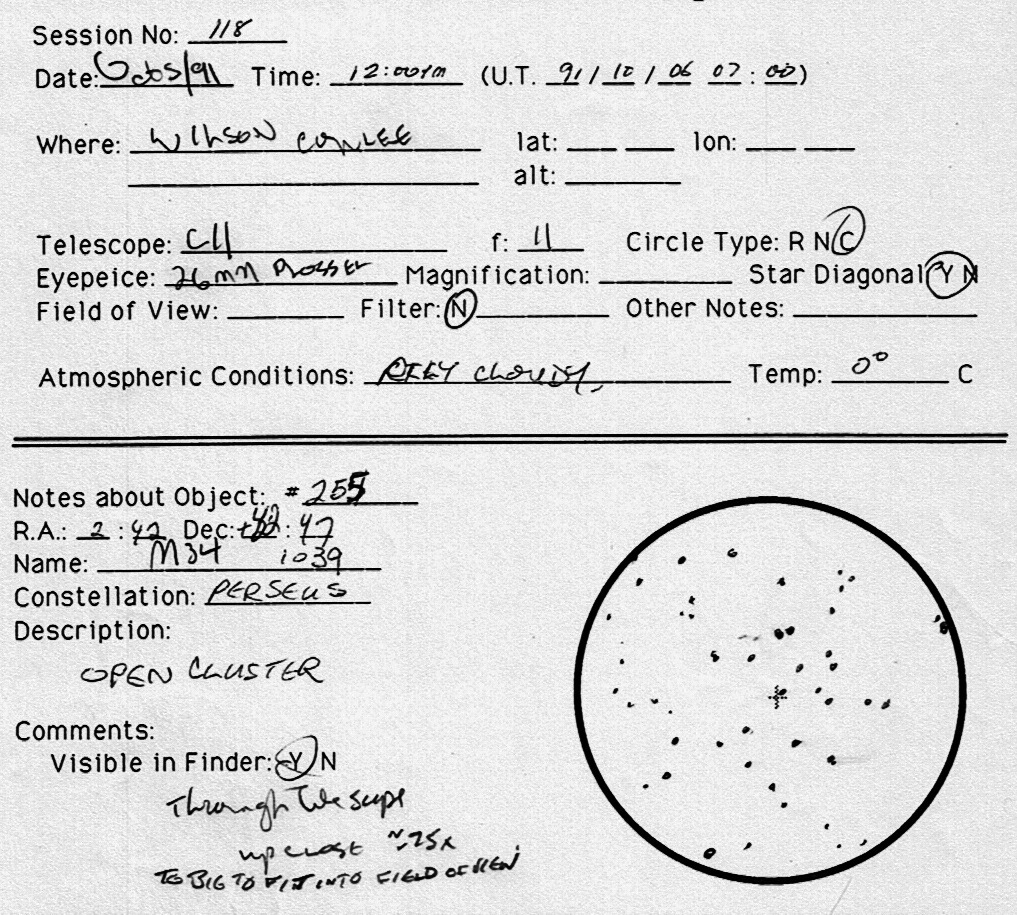 Session No: 118
Date: Oct 5/91 Time: 12:00 AM (U.T. 91/10/06 07:00)
Where: WILLSON COULEE lat: lon:
alt:
Telescope: C11 f: 11 Circle Type: R N C
Eyepeice: 26mm Plossel Magnification: Star Diagonal Y N
Field of View: Filter: N Other Notes:
Atmospheric Conditions: VERY CLOUDY. Temp: 0° C
Notes about Object: # 255
R.A.: 2 : 42 Dec: +42 : 47
Name: M34 1039
Constellation: PERSEUS
Description:
OPEN CLUSTER
Comments:
Visible in Finder: Y N
Through Telescope
up close ~75x
TO BIG TO FIT INTO FIELD OF VIEW